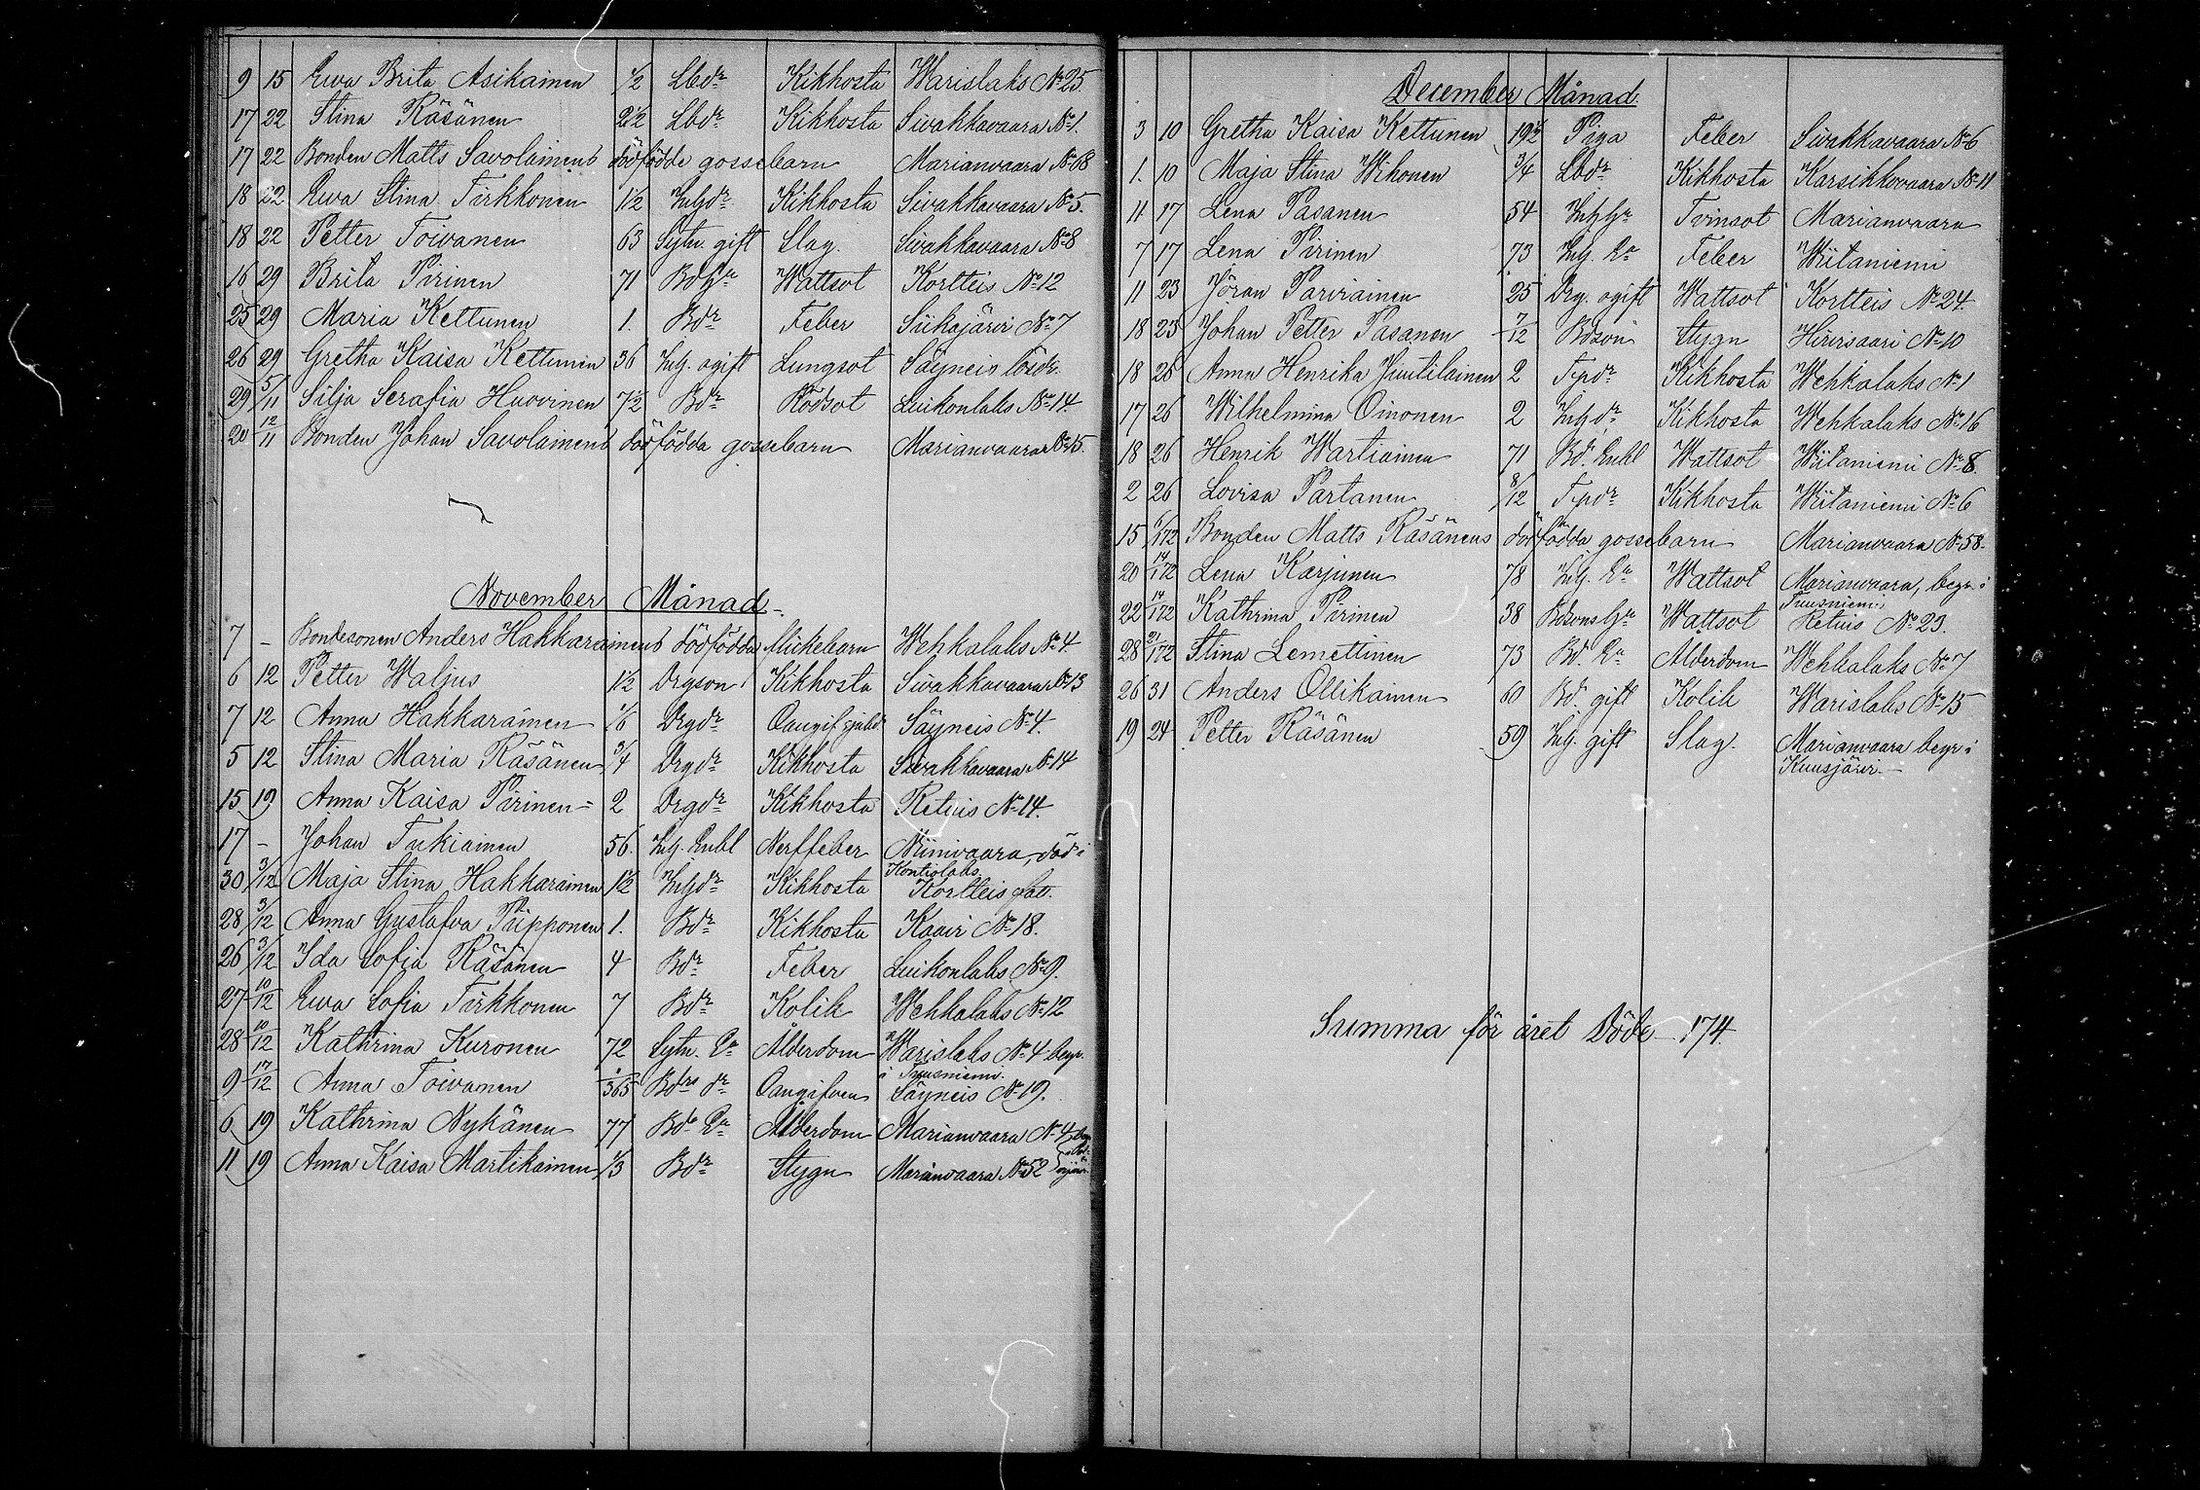 9 15 Ewa Brita Asikainen 1/2 Lbdr Kikhosta Warislaks No 25.
17 22 Stina Räsänen 2 1/2 Lbdr Kikhosta Sivakkavaara No 1.
17 22 Bonden Matts Savolainens dödfödde gossebarn Marianvaara No 18
18 22 Ewa Stina Tirkkonen 1 1/2 Inhdr Kikhosta Sivakkavaara No 5.
18 22 Petter Toivanen 63 Sytn. gift Slag. Sivakkavaara No 8
16 29 Brita Pirinen 71 Bdhu Wattsot Kortteis No 12
25 29 Maria Kettunen 1. Bdr Feber Siikajärvi No 7
26 29 Gretha Kaisa Kettunen 36 Inh. ogift Lungsot Säyneis lösdr.
29 5/11 Silja Serafia Huovinen 7 1/2 Bdr Rödsot Luikonlaks No 14.
20 12/11 Bonden Johan Savolainens dödfödda gossebarn Marianvaara No 15.
November Månad
7 - Bondesonen Anders Hakkarainens dödfödda flickebarn Wehkalaks No 4
6 12 Petter Waljus 1 1/2 Drgson Kikhosta Sivakkavaara No 13
7 12 Anna Hakkarainen 1/6 Drgdr Oangif. sjukd. Säyneis No 4.
5 12 Stina Maria Räsänen 3/4 Drgdr Kikhosta Sivakkavaara No 14
15 19 Anna Kaisa Pirinen 2 Drgdr Kikhosta Retuis No 14.
17 - Johan Tukiainen 56. Inh. Enkl Nerffeber Niinivaara, död i
Kontiolaks.
30 3/12 Maja Stina Hakkarainen 1 1/2 Inhdr Kikhosta Kortteis fatt.
28 3/12 Anna Gustafva Piipponen 1. Bdr Kikhosta Kaavi No 18.
26 3/12 Ida Sofia Räsänen 4 Bdr Feber Luikonlaks No 9.
27 10/12 Ewa Sofia Tirkkonen 7 Bdr Kolik Wehkalaks No 12
28 10/12 Kathrina Kuronen 72 Sytn. Ea Ålderdom Warislaks No 4 begr.
i Tuusniemi.
9 17/12 Anna Toivanen 1/365 Bdrs dr Oangifven Säyneis No 19.
6 19 Kathrina Nykänen 77 Bds Ea Ålderdom Marianvaara No 4 begr
11 19 Anna Kaisa Martikainen 1/3 Bdr Stygn Marianvaara No 52
December Månad.
3 10 Gretha Kaisa Kettunen 19 1/2 Piga Feber Sivakkavaara No 6
1. 10 Maja Stina Wihonen 3/4 Lbdr Kikhosta Karsikkovaara No 11
11 17 Lena Pasanen 54 Inhhu Tvinsot Marianvaara
7 17 Lena Pirinen 73 Inh. Ea Feber Wiitaniemi
11 23 Jöran Parviainen 25 Drg. ogift Wattsot Kortteis No 24.
18 23 Johan Petter Pasanen 7/12 Bdson Stygn Hirvisaari No 10
18 26 Anna Henrika Juutilainen 2 Tpdr Kikhosta Wehkalaks No 1
17 26 Wilhelmina Oinonen 2 Inhdr Kikhosta Wehkalaks No 16
18 26 Henrik Wartiainen 71 Bd. Enkl Wattsot Wiitaniemi No 8.
2 26 Lovisa Partanen 8/12 Tpdr Kikhosta Wiitaniemi No 6
15 6/1 72 Bonden Matts Räsänens dödfödda gossebarn Marianvaara No 58.
20 14/1 72 Lena Karjunen 78 Inh. Ea Wattsot Marianvaara, begr. i
Tuusniemi
22 14/1 72 Kathrina Pirinen 38 Bdsons hu Wattsot Retuis No 23.
28 21/1 72 Stina Lemettinen 73 Bd. Ea Ålderdom Wehkalaks No 7
26 31 Anders Ollikainen 60 Bd. gift Kolik Warislaks No 15
19 24 Petter Räsänen 59 Inh. gift Slag. Marianvaara begr i
Kuusjärvi.
Summa för året Döde 174